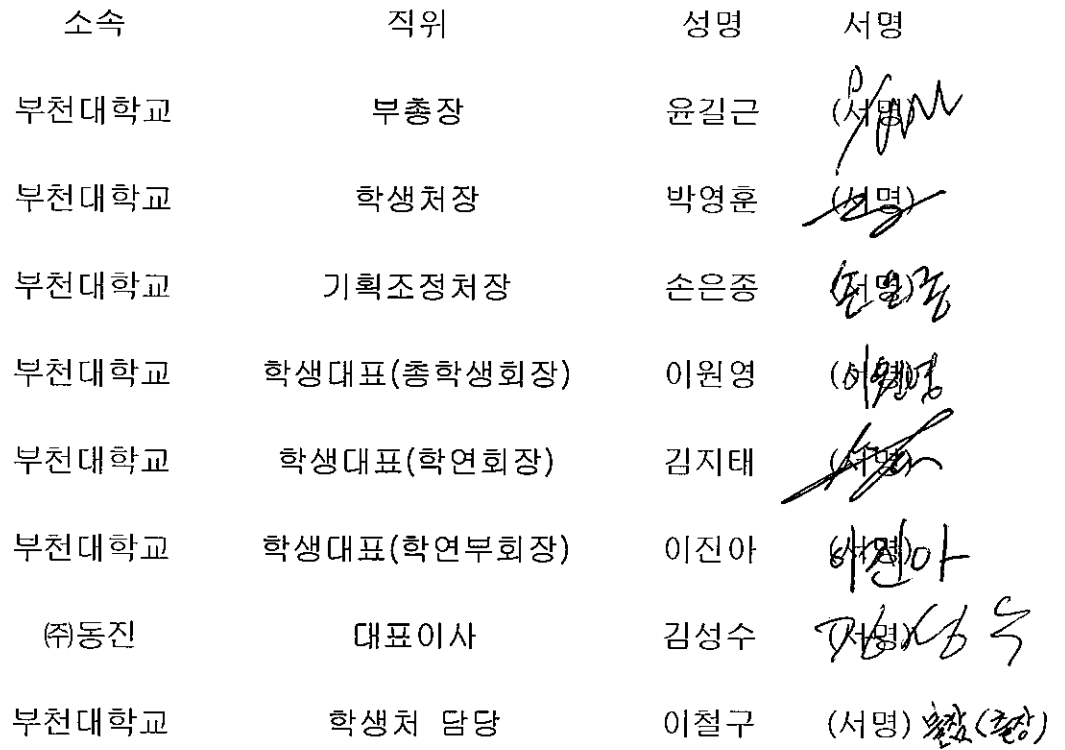 소속 직위 성명 서명
부천대학교 부총장 윤길근 (서명)
부천대학교 학생처장 박영훈 (서명)
부천대학교 기획조정처장 손은종 (서명) 손은종
부천대학교 학생대표(총학생회장) 이원영 (서명) 이원영
부천대학교 학생대표(학연회장) 김지태 (서명)
부천대학교 학생대표(학연부회장) 이진아 (서명) 이진아
㈜동진 대표이사 김성수 (서명) 김성수
부천대학교 학생처 담당 이철구 (서명) 불참(출장)